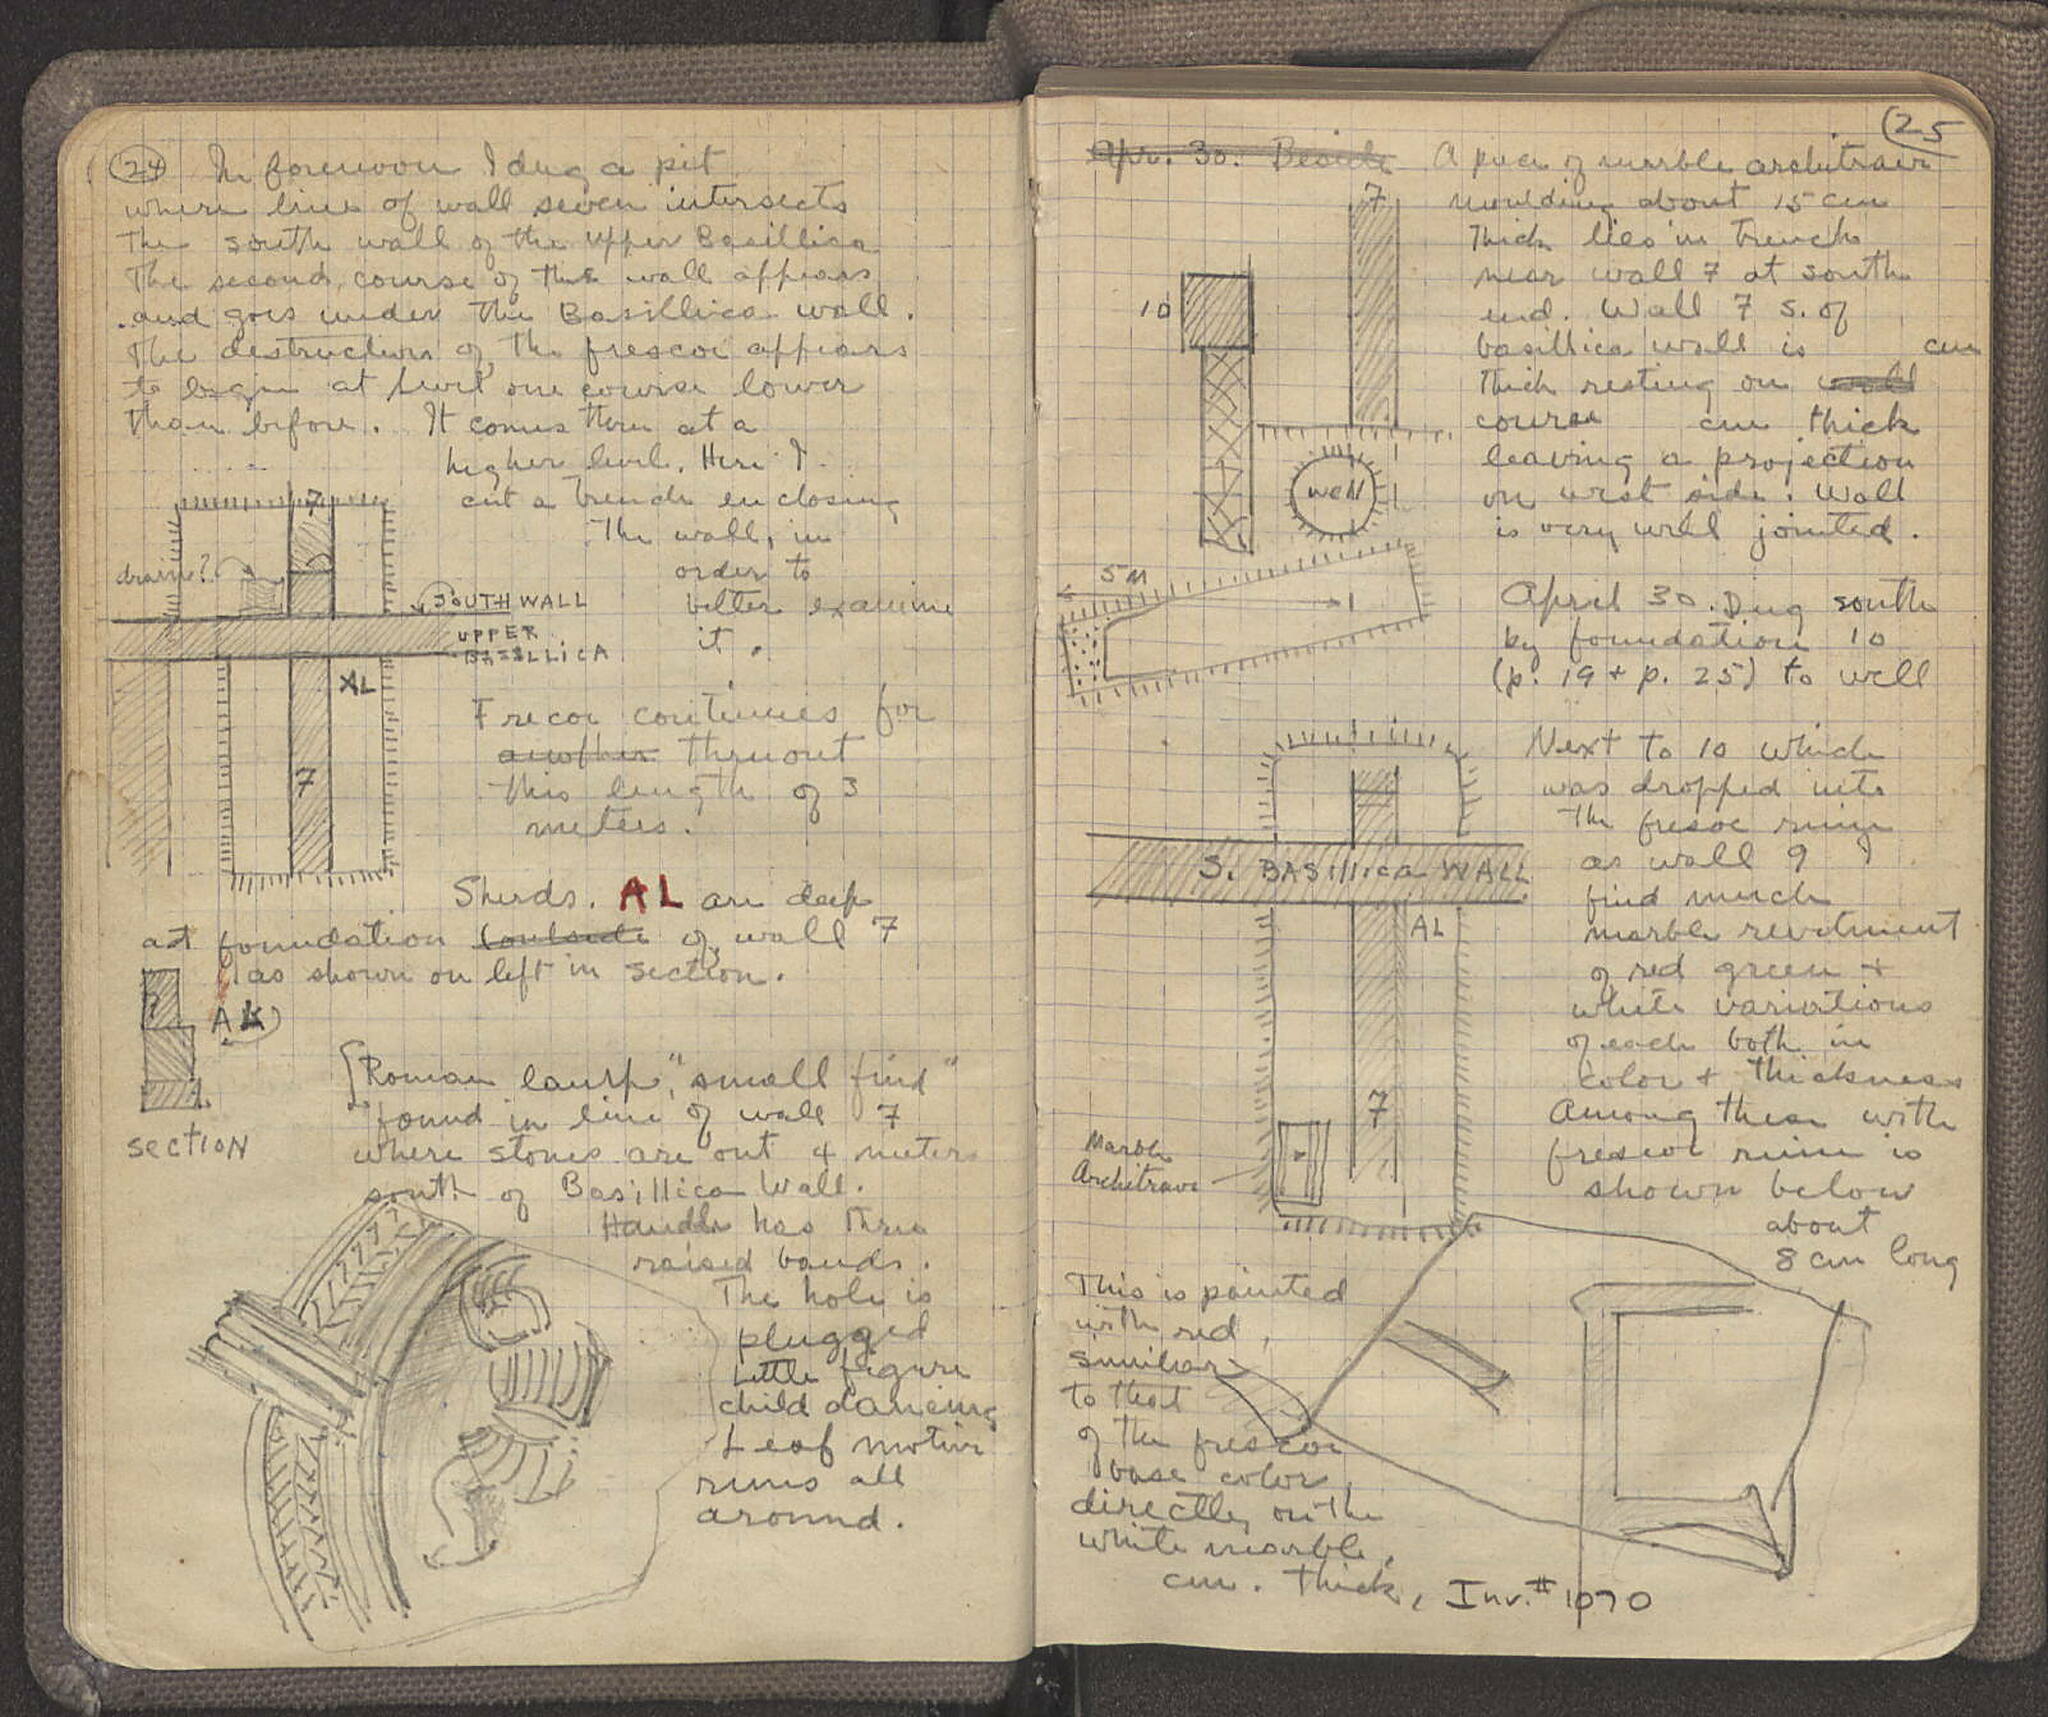 24 In forenoon I dug a pit
where line of wall seven intersects
the south wall of the upper Basillica
The second course of the wall appears
and goes under the Basillica wall.
The destruction of the frescoe appears
to begin at level one course lower
than before. It comes then at a
higher level. Here I
cut a trench enclosing
the wall, in
order to
better examine
it.
7
drain?
SOUTH WALL
UPPER
BASILLICA
AL
7
Frecoe continues for
another thruout
this length of 3
meters.
Sherds. AL are deep
at foundation (outside of wall 7
as shown on left in section.
7
section
Roman lamp, "small find"
found in line of wall 7
where stones are out 4 meters
south of Basillica Wall.
Handle has three
raised bands.
The hole is
plugged
Little figure
child dancing
Leaf motive
runs all
around.
25
Apr. 30. Beside A piece of marble architrave
moulding about 15 cm
thick lies in trench
near wall 7 at south
end. Wall 7 S. of
basillica wall is cm
thick resting on wall
course cm thick
leaving a projection
on west side. Wall
is very well jointed.
7
10
well
5 M
April 30. Dug south
by foundation 10
(p. 19 + p. 25) to well
Next to 10 which
was dropped into
the fresoe ruin
as wall 9 I
find much
marble revetment
of red green +
white variations
of each both in
color + thickness
Among these with
frescoe ruin is
shown below
about
8 cm long
S. BASILLICA WALL
AL
7
Marble
Architrave
This is painted
with red,
similar
to that
of the frescoe
base color,
directly on the
white marble,
cm. thick, Inv. # 1070